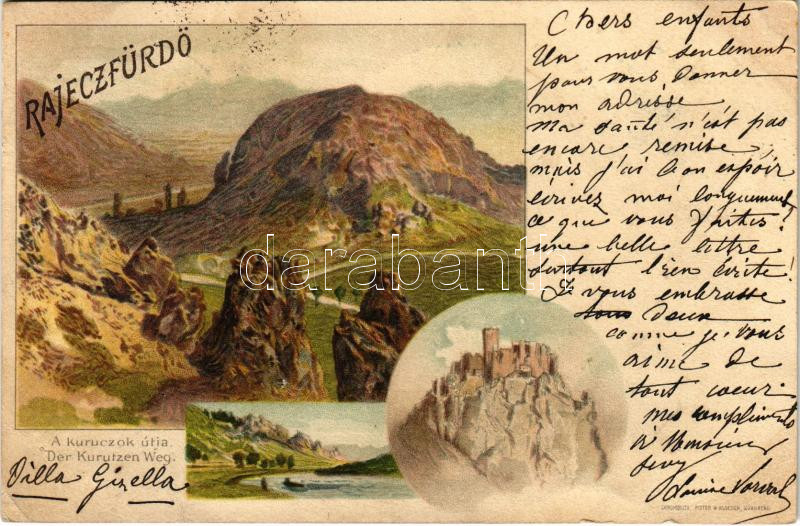 RAJECZFÜRDŐ
A kuruczok útja.
Der Kurutzen Weg.
Villa Gizella
darabanth
Chers enfants
Un mot seulement
pour vous donner
mon adresse
Ma santé n'est pas
encore remise,
mais j'ai bon espoir
écrivez moi longuement
ce que vous faites!
une belle lettre
surtout bien écrite!
Je vous embrasse
tous deux
comme je vous
aime de
tout coeur
mes compliments
à Monsieur
Louise